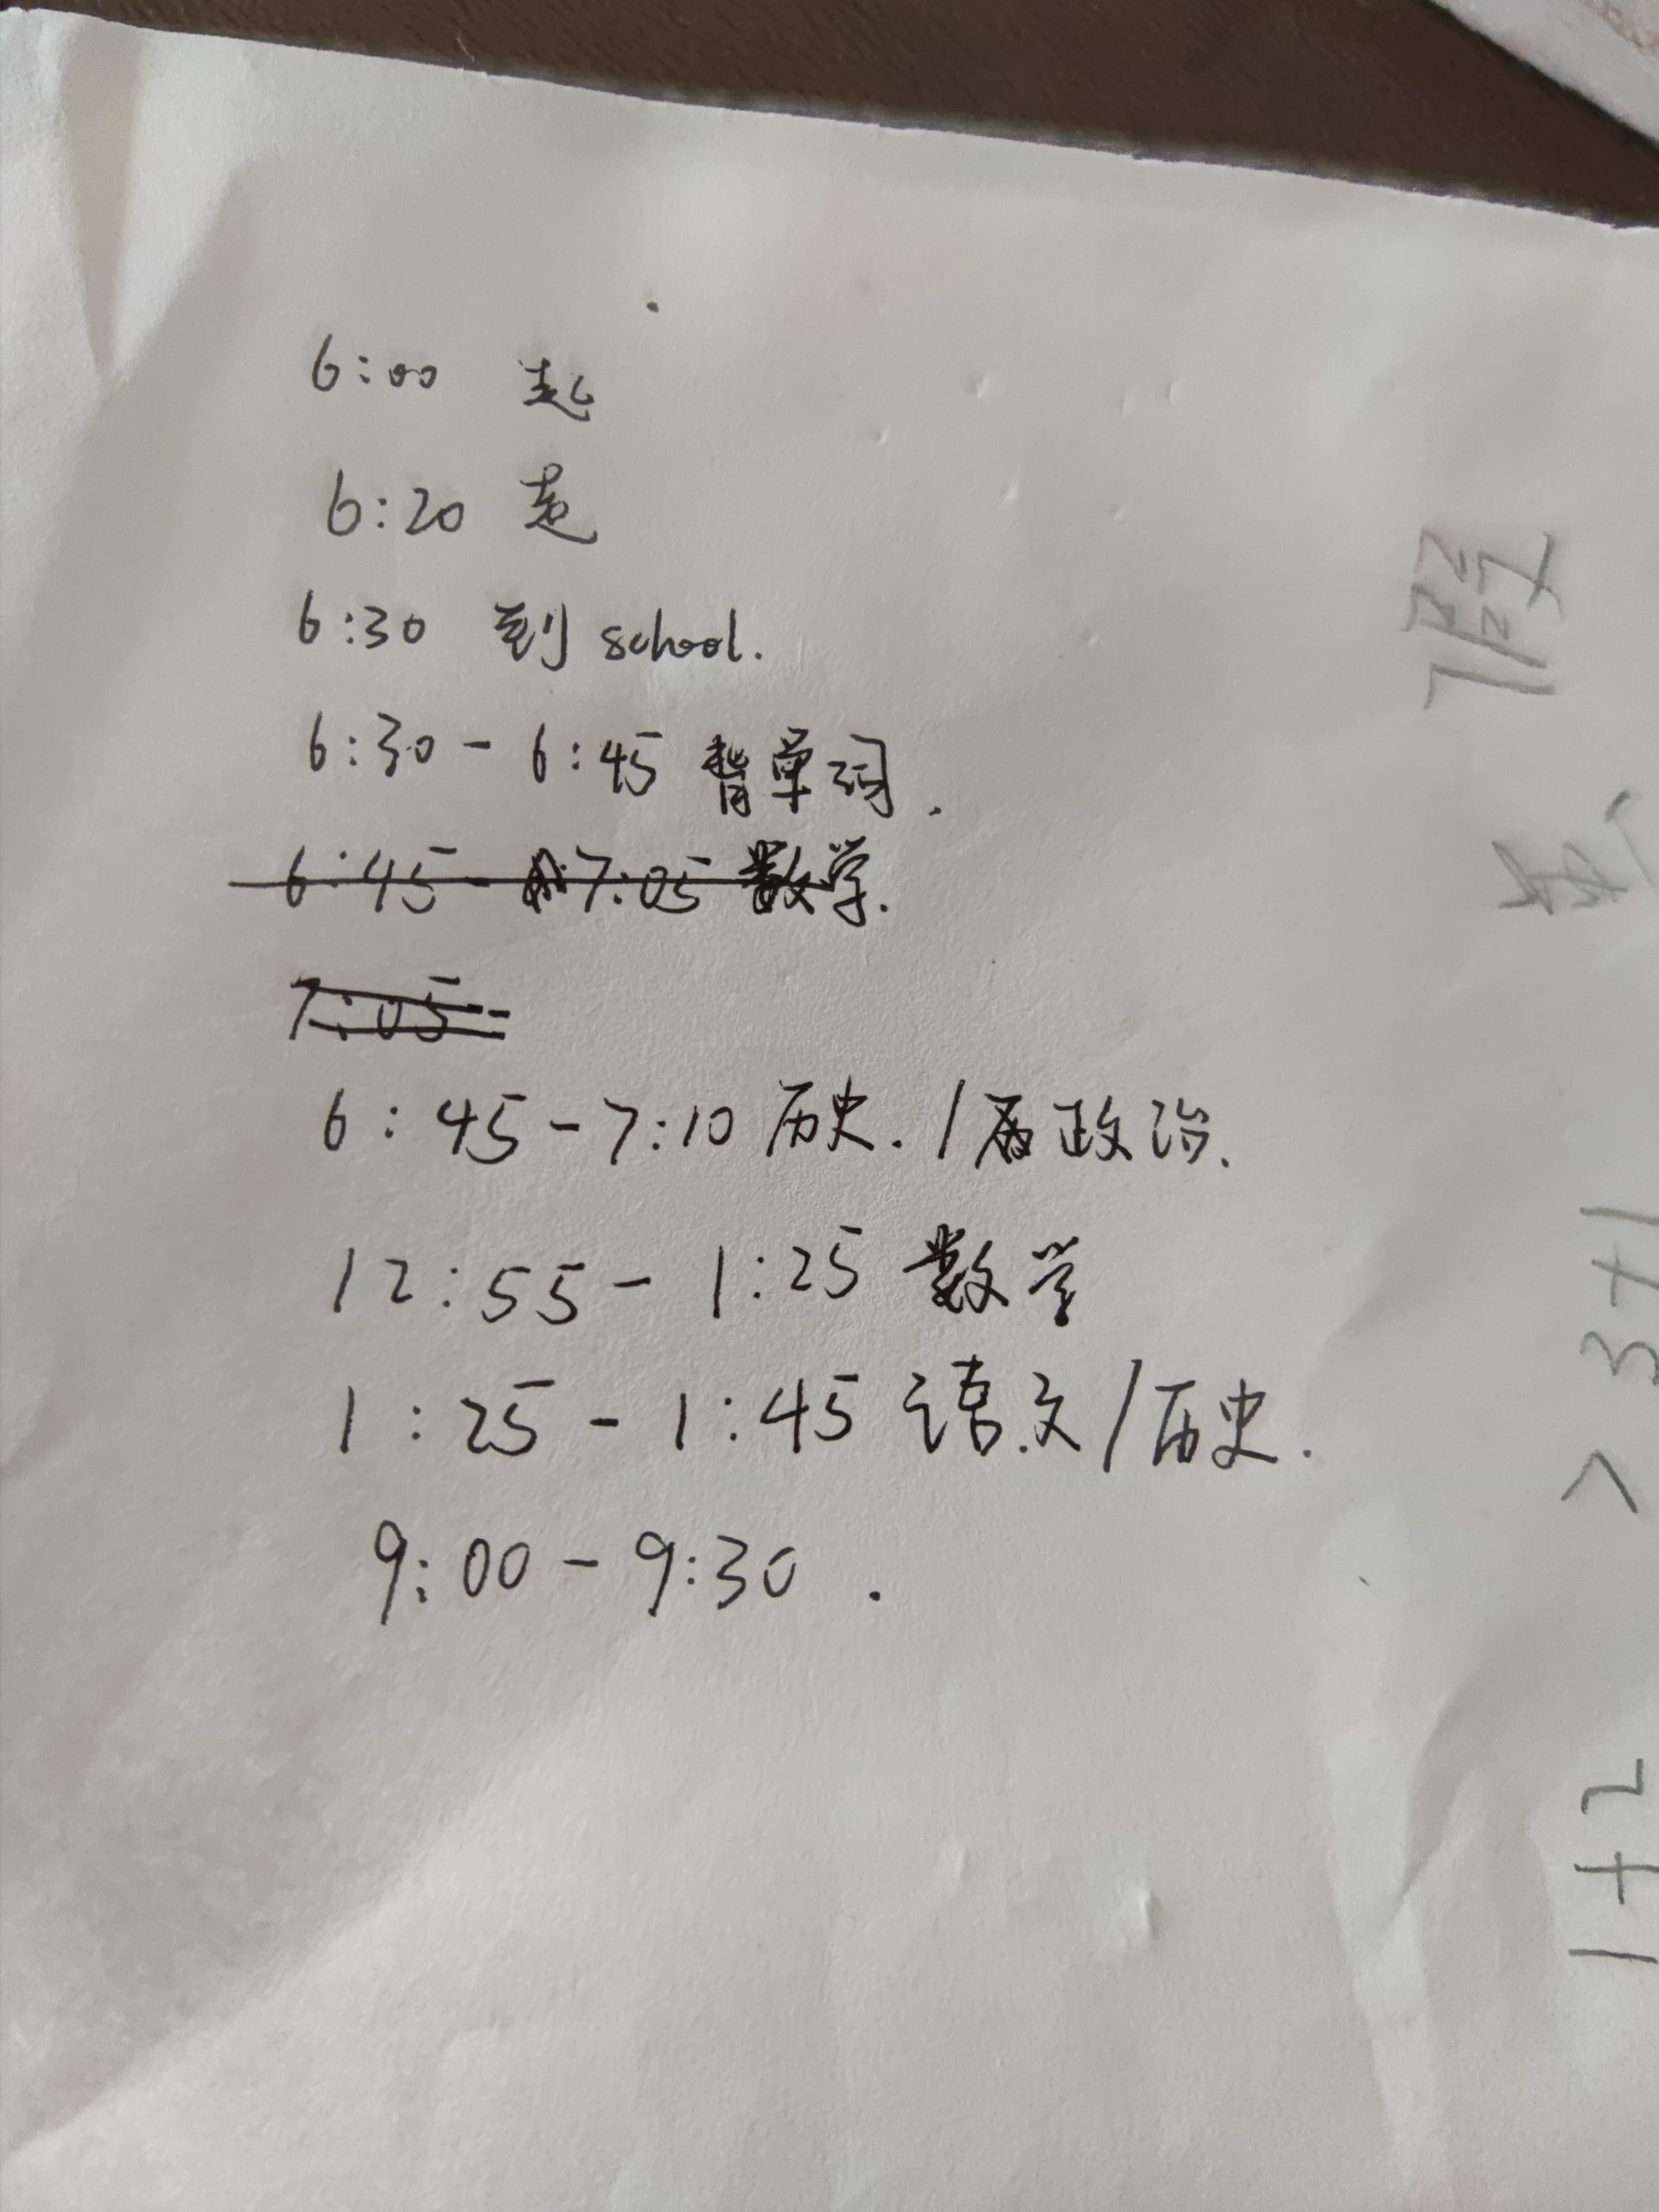 6:00 起
6:20 走
6:30 到 school.
6:30 - 6:45 背单词.
6:45 - 7:05 数学.
7:05 -
6:45 - 7:10 历史. / 政治.
12:55 - 1:25 数学
1:25 - 1:45 语文 / 历史.
9:00 - 9:30 .
1+2 > 3+1